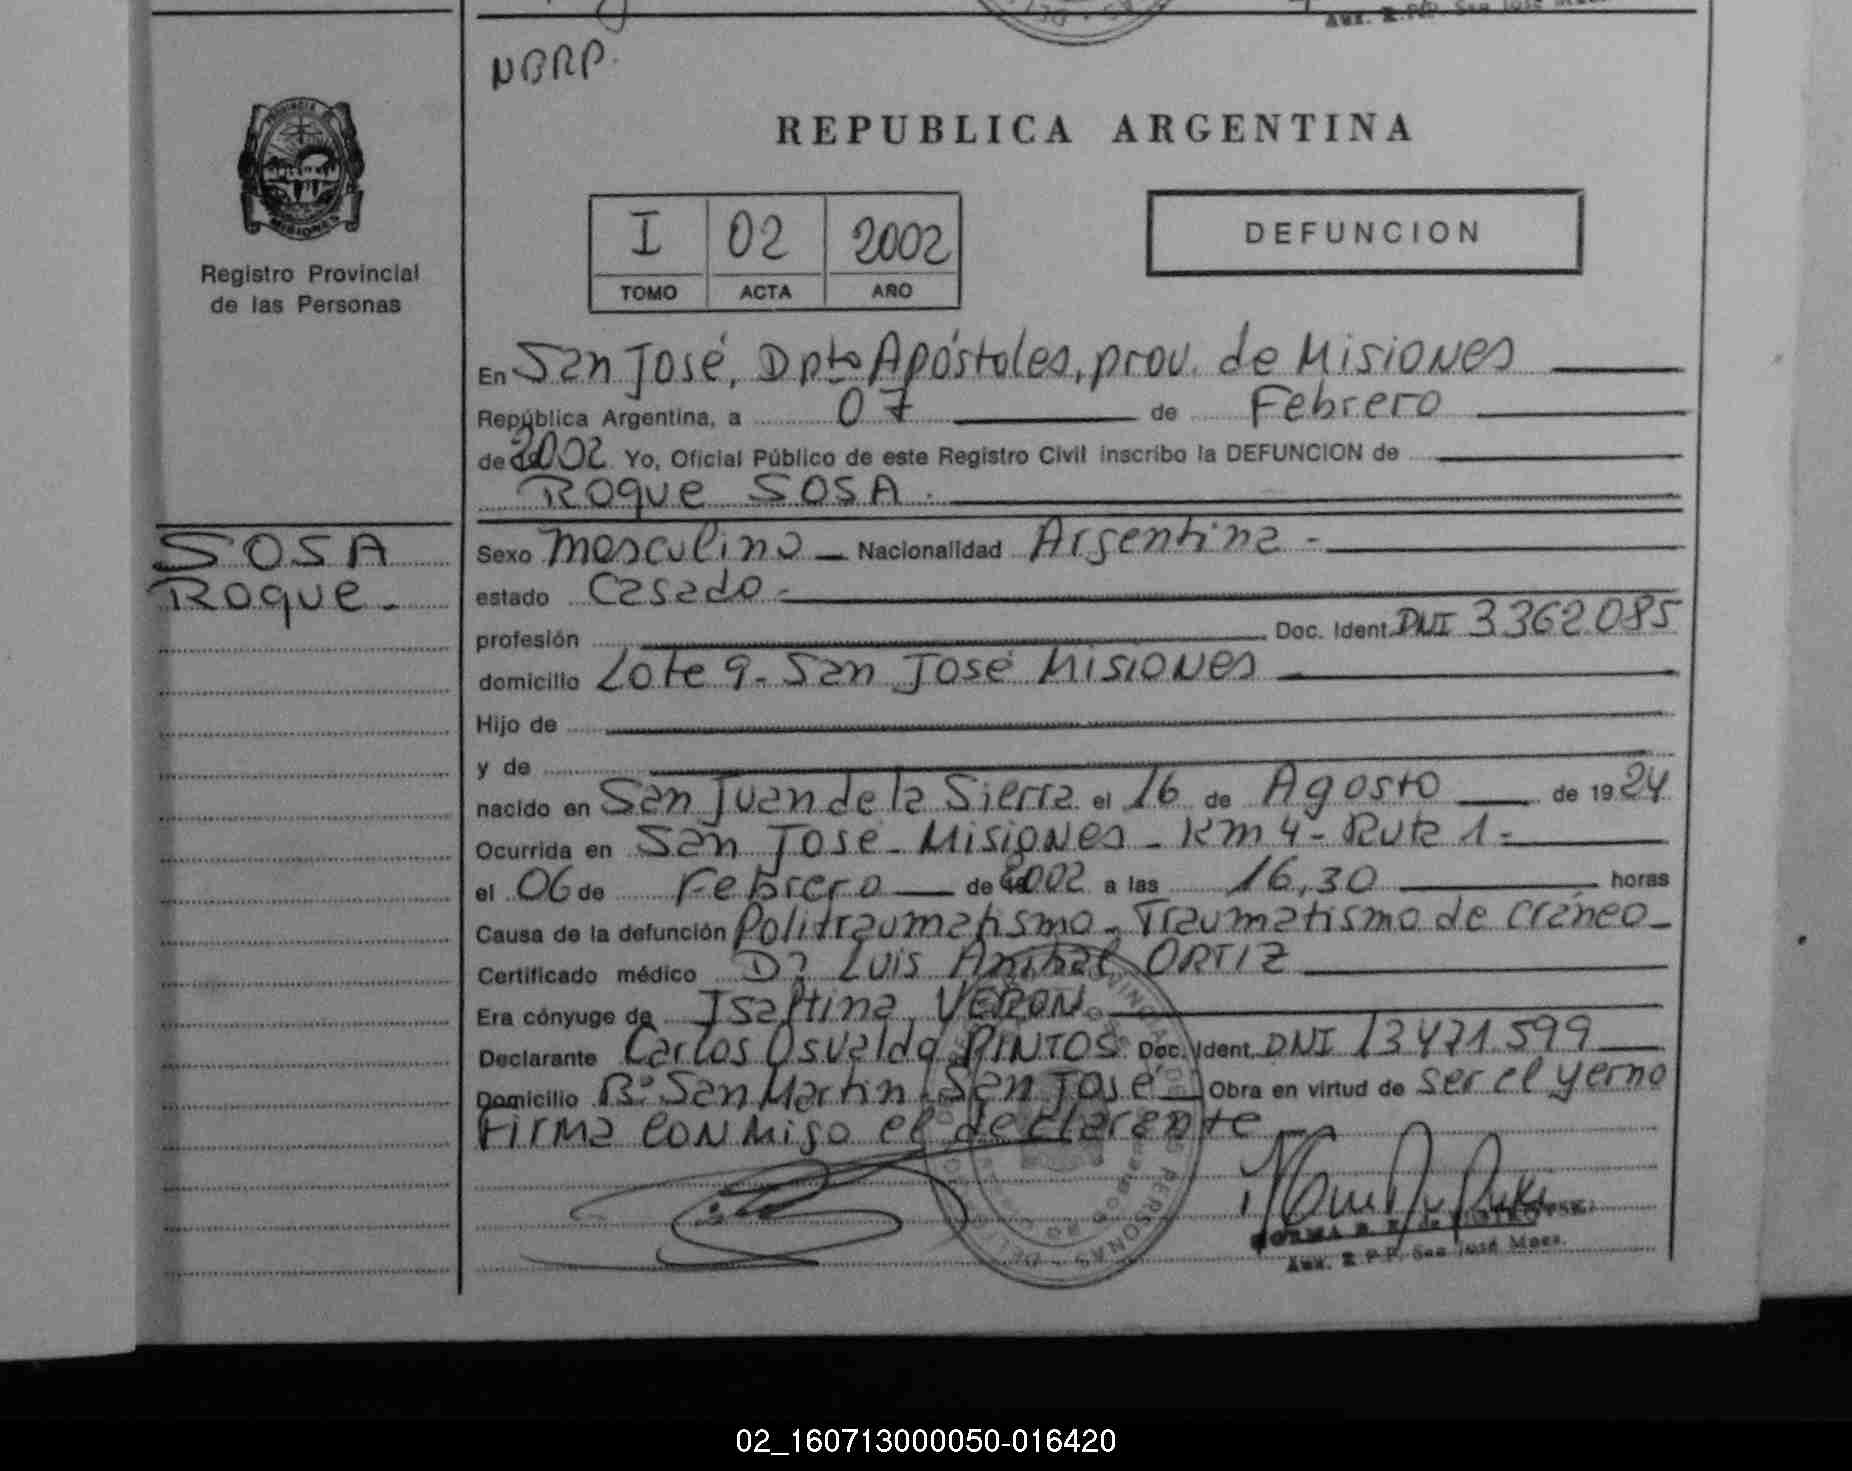 NBRP.
REPUBLICA ARGENTINA
PROVINCIA DE
MISIONES
Registro Provincial
de las Personas
I 02 2002
TOMO ACTA AÑO
DEFUNCION
En San José, Dpto Apóstoles, prov. de Misiones
República Argentina, a 07 de Febrero
de 2002 Yo, Oficial Público de este Registro Civil inscribo la DEFUNCION de
Roque SOSA.
SOSA
Roque.
Sexo masculino Nacionalidad Argentina -
estado Casado -
profesión Doc. Ident. DNI 3362085
domicilio Lote 9 - San José Misiones
Hijo de
y de
nacido en San Juan de la Sierra el 16 de Agosto de 1924
Ocurrida en San José - Misiones - Km 4 - Ruta 1 -
el 06 de Febrero de 2002 a las 16,30 horas
Causa de la defunción Politraumatismo - Traumatismo de cráneo -
Certificado médico Dr Luis Anibal ORTIZ
Era cónyuge de Isaltina VERON
Declarante Carlos Osvaldo PINTOS Doc. Ident. DNI 13471.599
Domicilio Bº San Martin San José Obra en virtud de ser el yerno
Firma conmigo el declarante
Aux. R.P.P. San José Mnes.
02_160713000050-016420